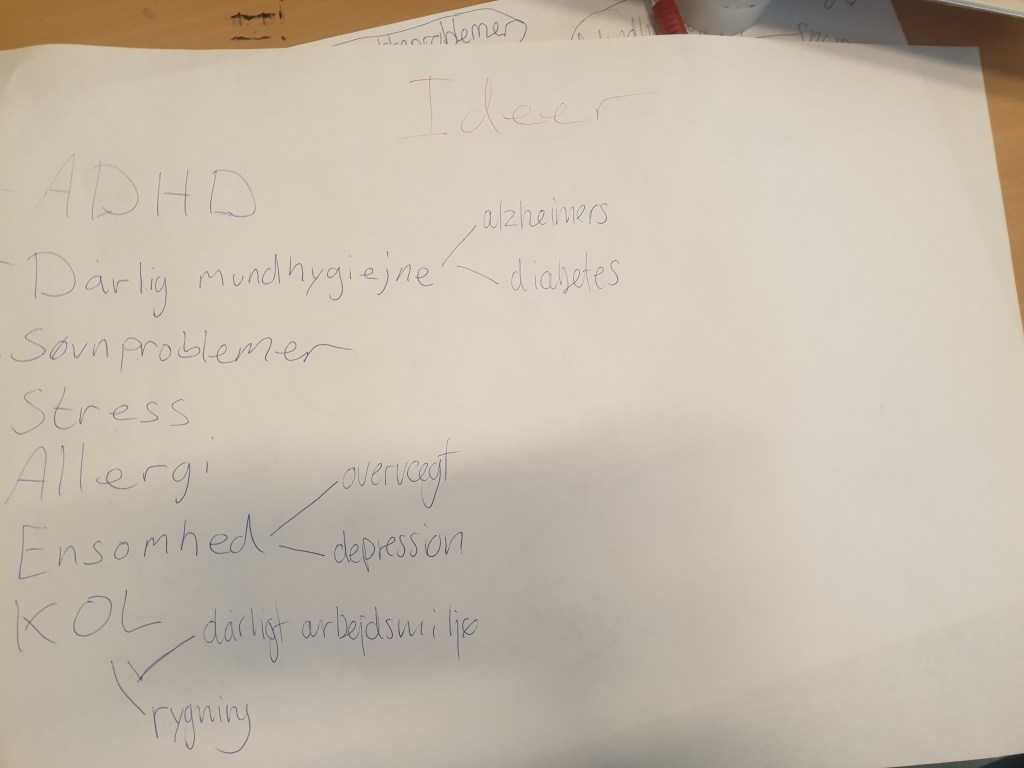 Ideer
- ADHD
alzheimers
- Dårlig mundhygiejne
diabetes
- Søvnproblemer
Stress
Allergi
overvægt
Ensomhed
depression
KOL
dårligt arbejdsmiljø
rygning